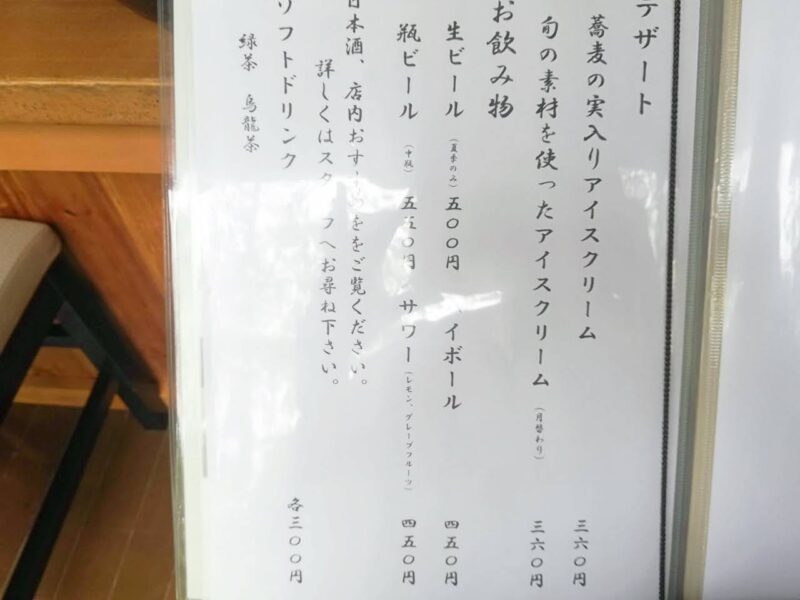 デザート
蕎麦の実入りアイスクリーム 三六〇円
旬の素材を使ったアイスクリーム（月替わり） 三六〇円
お飲み物
生ビール（夏季のみ） 五〇〇円 イボール 四五〇円
瓶ビール（中瓶） 五五〇円 サワー（レモン、グレープフルーツ） 四五〇円
日本酒、店内おす をご覧ください。
詳しくはスタ フへお尋ね下さい。
ソフトドリンク 各三〇〇円
緑茶 烏龍茶